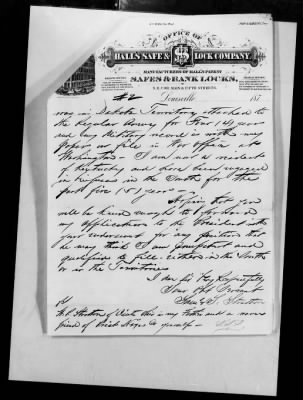 OFFICE OF
HALL'S SAFE & LOCK COMPANY,
MANUFACTURERS OF HALL'S PATENT
SAFES & BANK LOCKS,
S.E. COR. MAIN & FIFTH STREETS.
#2 Louisville 187
was in Dakota Territory attached to
the Regular Army for Four (4) years
and my Military record is with my
papers on file in War Office at
Washington — I am now a resident
of Kentucky and have been engaged
in business in the South for the
past five (5) years —
Hoping that you
will be kind enough to forward
my application to the President with
your endorsement for any position that
he may think I am competent and
qualified to fill — either in the South
or in the Territories
I am Sir Very Respectfully
Your Obt Servant
Stratton
Stratton of this is my Father and a warm
friend of